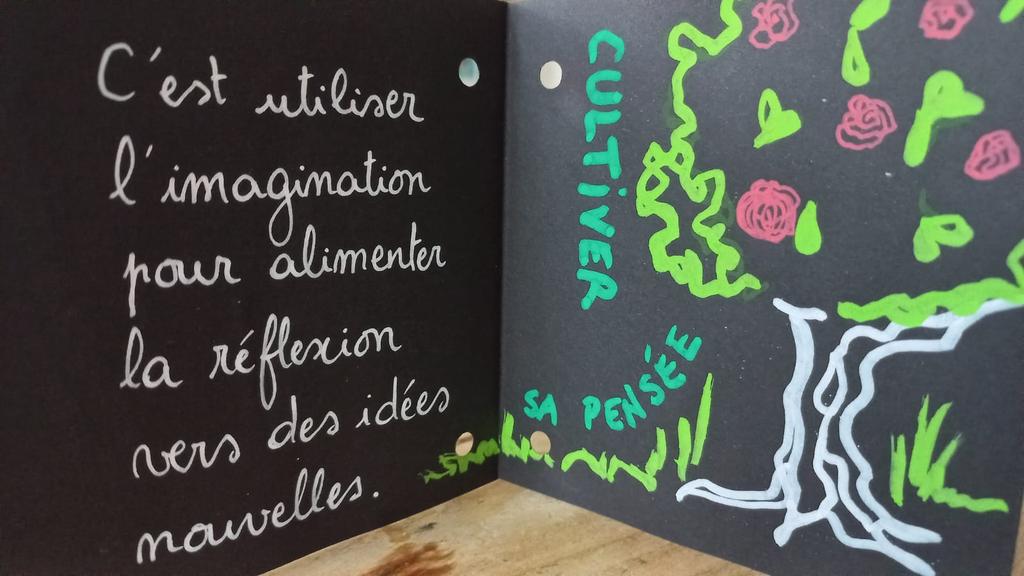 C'est utiliser
l'imagination
pour alimenter
la réflexion
vers des idées
nouvelles.
CULTiVER
SA PENSÉE